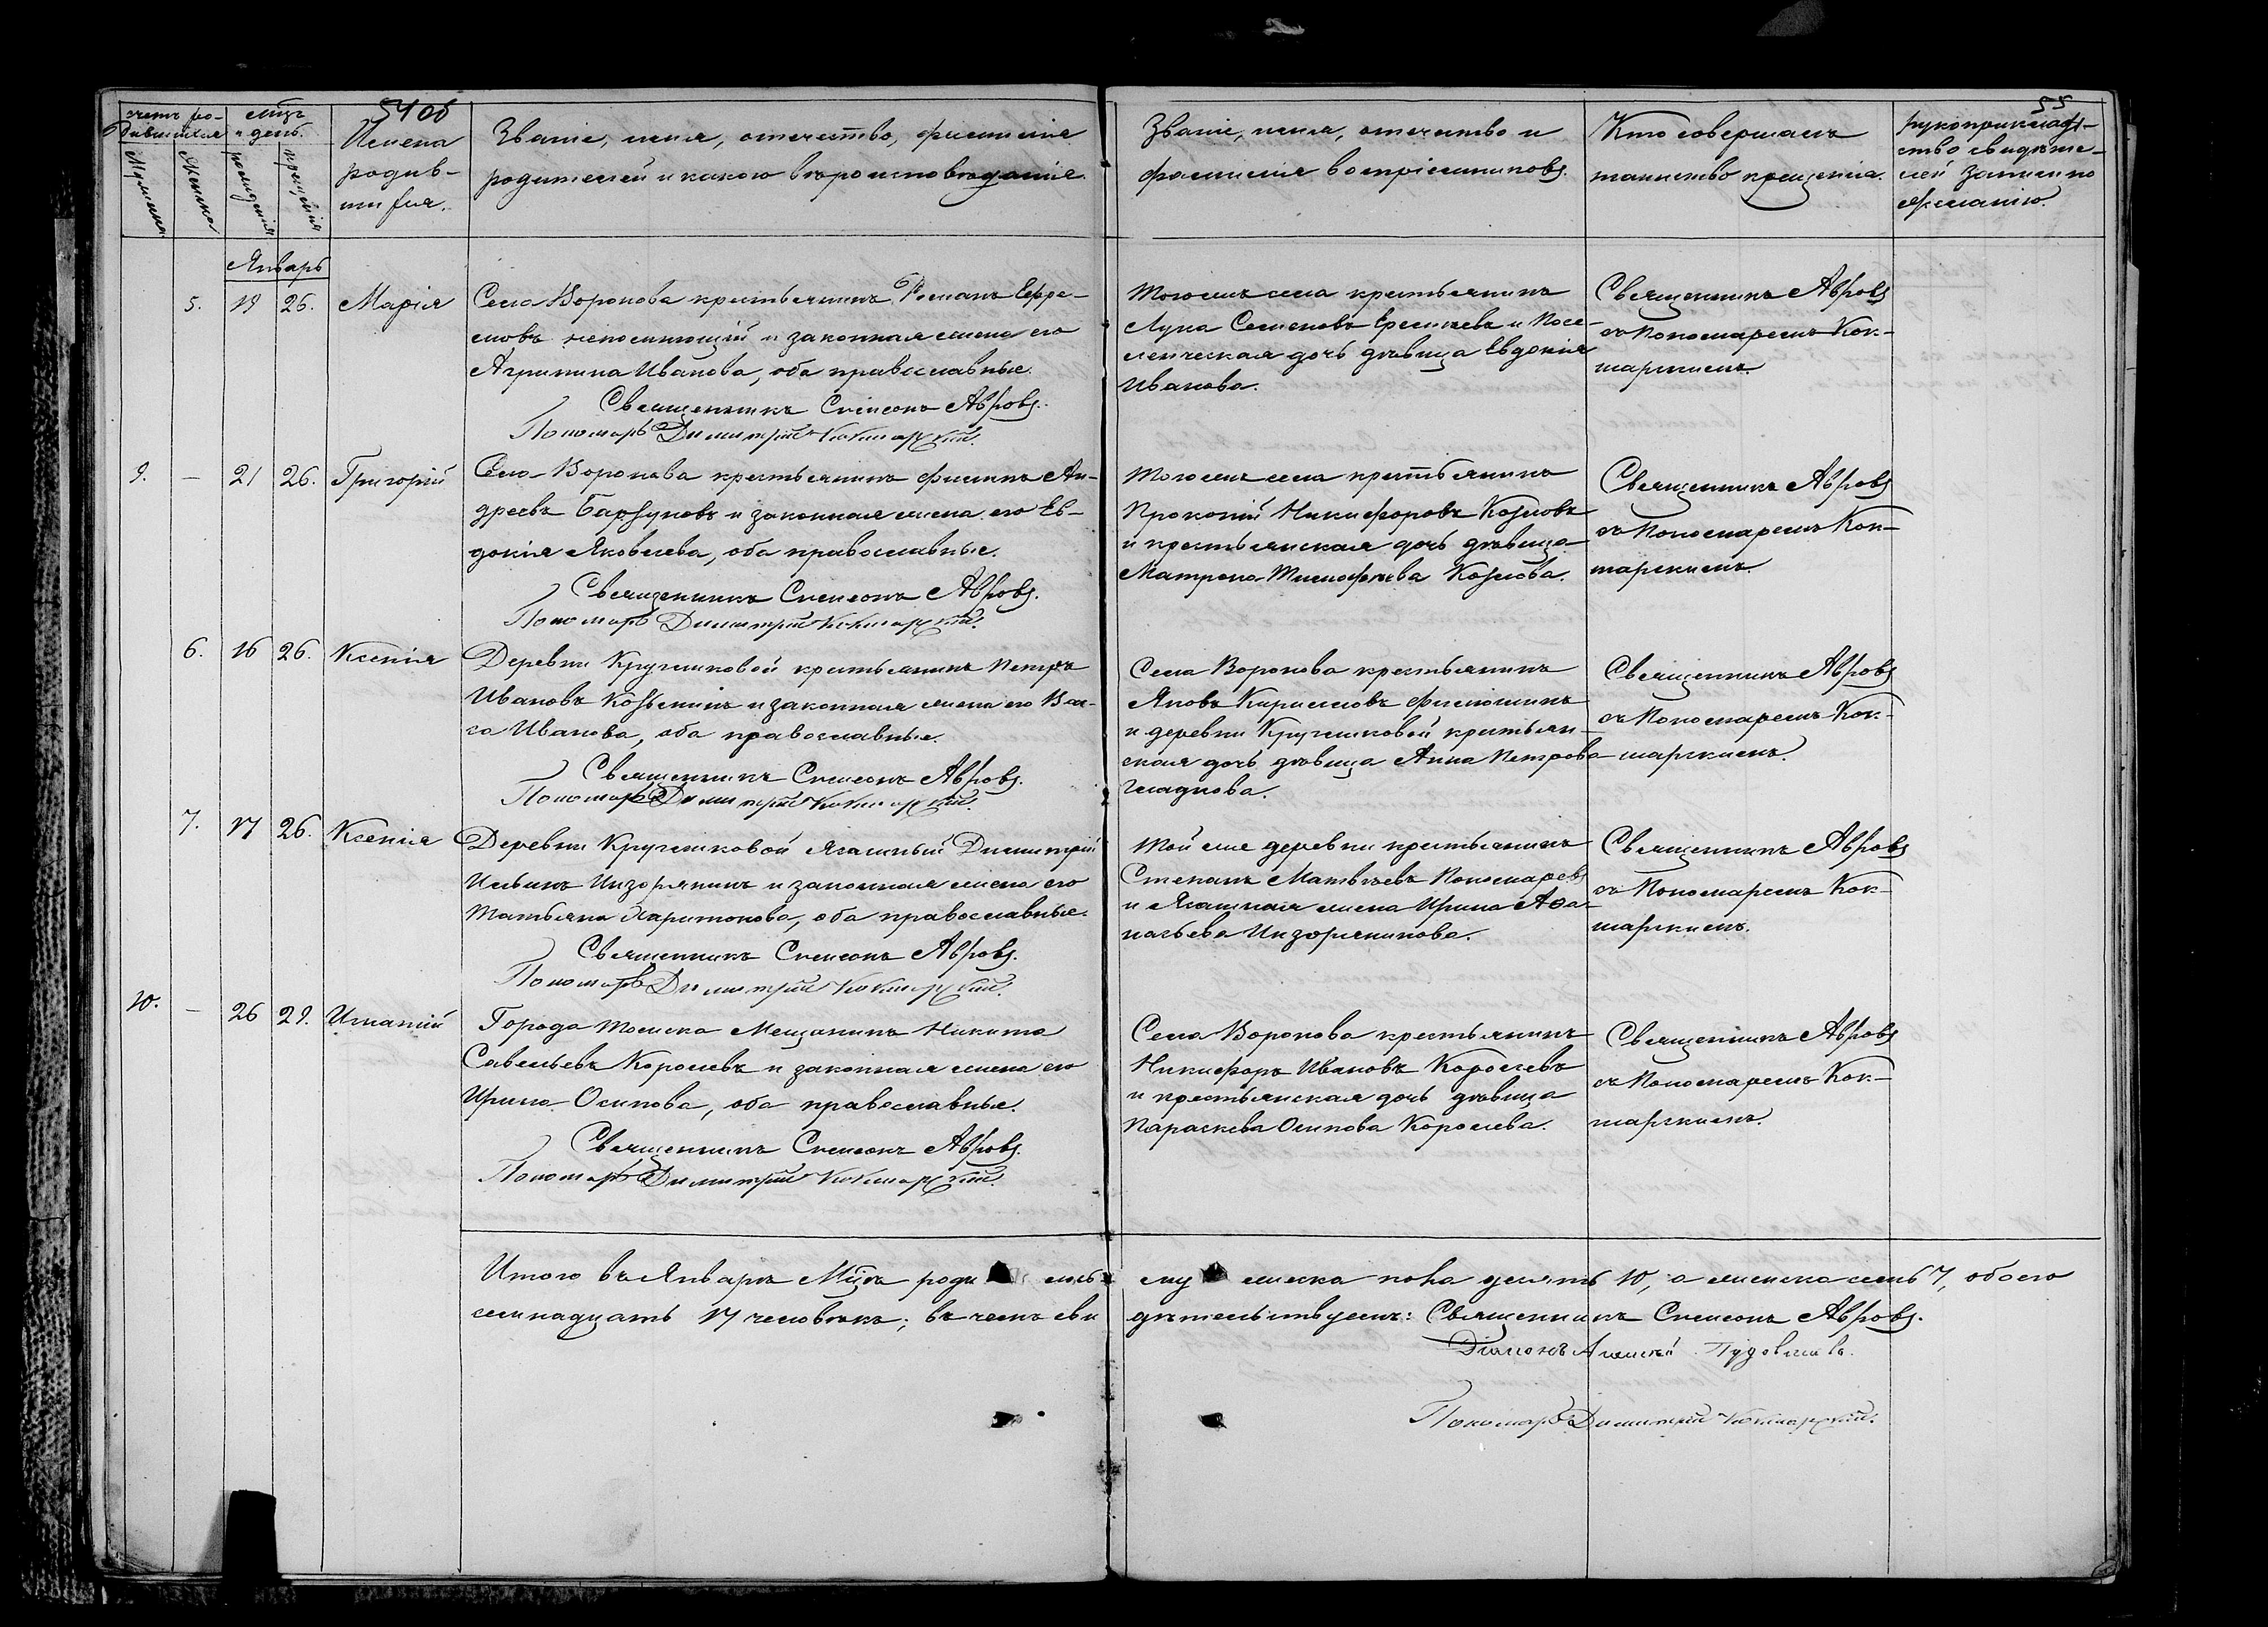 54 об
55
счетъ ро-
дившихся
мѣц.
и день.
Мужеска
Женска
рожденія
крещенія
Имена
родив-
шихся.
Званіе, имя, отечество, фамилія
родителей и какого вѣроисповѣданія.
Званіе, имя, отечество и
фамилія воспріемниковъ.
Кто совершалъ
таинство крещенія.
Рукоприклад-
ство свидѣте-
лей записи по
желанію.
Январь
5. 19 26. Марія
Села Воронова крестьянинъ Романъ Ефре-
мовъ непомнющій и законная жена его
Агрипина Иванова, оба православные.
Священникъ Симеонъ Авровъ.
Пономарь Димитрій Кокшарскій.
Тогожъ села крестьянинъ
Лука Семеновъ Еремѣевъ и Посе-
ленческая дочь дѣвица Евдокія
Иванова.
Священникъ Авровъ
съ Пономаремъ Кок-
шарскимъ.
9. — 21 26. Григорій
Села Воронова крестьянинъ Филипъ Ан-
дреевъ Барсуковъ и законная жена его Ев-
докія Яковлева, оба православные.
Священникъ Симеонъ Авровъ.
Пономарь Димитрій Кокшарскій.
Тогожъ села крестьянинъ
Прокопій Никифоровъ Козловъ
и крестьянская дочь дѣвица
Матрона Тимофѣева Козлова.
Священникъ Авровъ
съ Пономаремъ Кок-
шарскимъ.
6. 16 26. Ксенія
Деревни Кругликовой крестьянинъ Петръ
Ивановъ Козьминъ и законная жена его Вас-
са Иванова, оба православные.
Священникъ Симеонъ Авровъ.
Пономарь Димитрій Кокшарскій.
Села Воронова крестьянинъ
Яковъ Кириловъ Филюшинъ
и деревни Кругликовой крестьян-
ская дочь дѣвица Анна Петрова
Гладкова.
Священникъ Авровъ
съ Пономаремъ Кок-
шарскимъ.
7. 17 26. Ксенія
Деревни Кругликовой Ясашный Димитрій
Ильинъ Инзорянинъ и законная жена его
Татьяна Харитонова, оба православные.
Священникъ Симеонъ Авровъ.
Пономарь Димитрій Кокшарскій.
Той же деревни крестьянинъ
Степанъ Матвѣевъ Пономаревъ
и Ясашная жена Ирина Аѳа-
насьева Инзорянинова.
Священникъ Авровъ
съ Пономаремъ Кок-
шарскимъ.
10. — 26 29. Игнатій
Города Томска Мещанинъ Никита
Савельевъ Королевъ и законная жена его
Ирина Осипова, оба православные.
Священникъ Симеонъ Авровъ.
Пономарь Димитрій Кокшарскій.
Села Воронова крестьянинъ
Никифоръ Ивановъ Королевъ
и крестьянская дочь дѣвица
Параскева Осипова Королева.
Священникъ Авровъ
съ Пономаремъ Кок-
шарскимъ.
Итого въ Январѣ Мцѣ роди лось му жеска пола десять 10, а женска семь 7, обоего
семнадцать 17 человѣкъ; въ чемъ сви дѣтельствуемъ: Священникъ Симеонъ Авровъ.
Діаконъ Алексѣй
Пономарь Димитрій Кокшарскій.